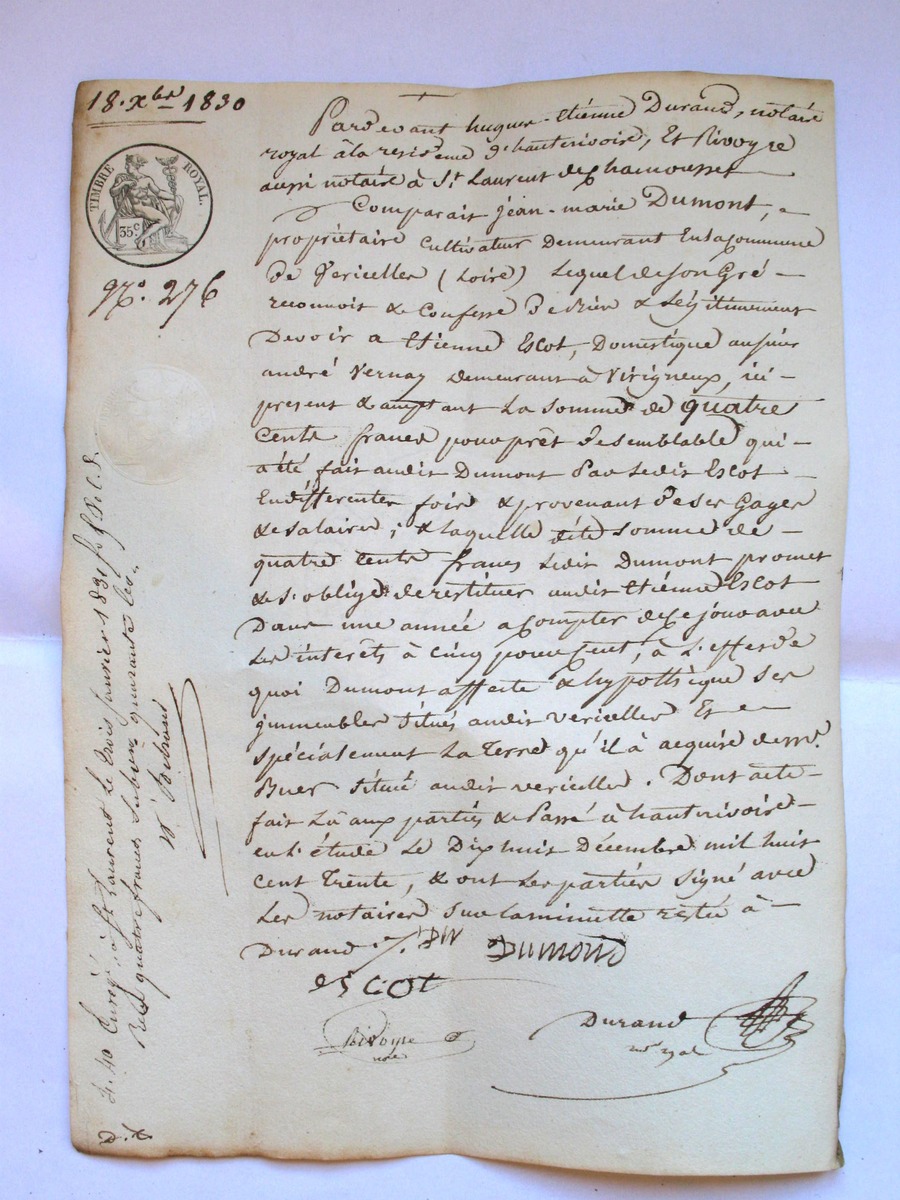 18. xbre 1830
TIMBRE ROYAL.
35 c
No. 276
Pardevant hugues-étienne Durand, notaire
royal à la residence d'hauterivoire, Et Rivoyre
aussi notaire à St. Laurent de Chamousset
Comparait jean-marie Dumont,
propriétaire cultivateur Demeurant En la Commune
De Vericelles (Loire) Lequel de son Gré
reconnoit & Confesse De Bien & Légitimement
Devoir a Etienne Escot, Domestique au sieur
andré Vernay demeurant à Virigneux, ici
present & acceptant La somme de quatre
Cents francs pour prêt De semblable qui
a été fait audit Dumont Par Ledit Escot
En différentes fois & provenant De ses Gages
& salaires; & laquelle dite somme de
quatre Cents francs Ledit Dumont promet
& s'oblige de restituer audit Etienne Escot
Dans une année a compter de Ce jour avec
Les interêts à Cinq pour Cent, à L'effet de
quoi Dumont affecte & hypothèque ses
immeubles situés audit vericelles Et
spécialement La Terre qu'il à acquise de mr.
Buer située audit vericelles. Dont acte
fait Lû aux parties & Passé à hauterivoire
en L'étude Le Dix huit Décembre mil huit
Cent Trente, & ont Les parties signé avec
Les notaires sur la minutte restée à
Durand DW DUMOND
esCOt
Rivoyre
nore
Durand
nre royal
Enregé. à St Laurent Le trois janvier 1831
Reçu quatre francs Subvon. quarante ces.